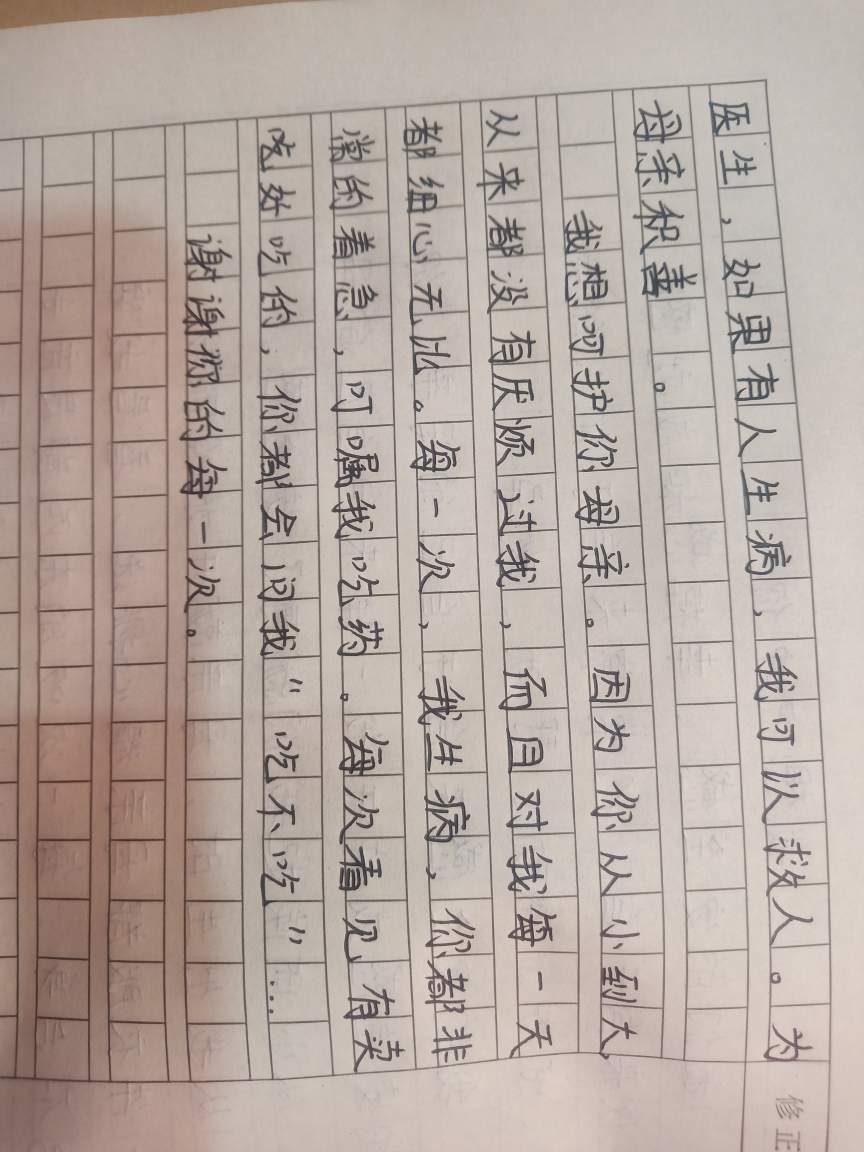 医生，如果有人生病，我可以救人。为
母亲积善。
我想呵护你母亲。因为你从小到大，
从来都没有厌烦过我，而且对我每一天
都细心无比。每一次，我生病，你都非
常的着急，叮嘱我吃药。每次看见有卖
吃处吃的，你都会问我“吃不吃”…
谢谢你的每一次。
修正